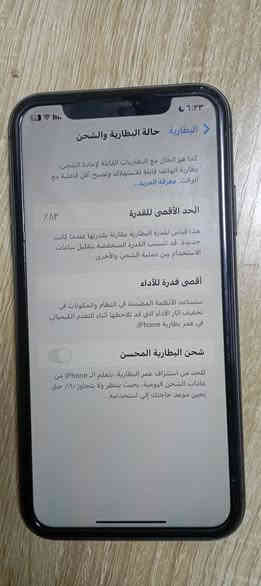 ٦:٢٣
البطارية
حالة البطارية والشحن
كما هو الحال مع البطاريات القابلة لإعادة الشحن،
بطارية الهاتف قابلة للاستهلاك وتصبح أقل فاعلية مع
الوقت. معرفة المزيد...
الحد الأقصى للقدرة
٨٣٪
هذا قياس لقدرة البطارية مقارنة بقدرتها عندما كانت
جديدة. قد تتسبب القدرة المنخفضة بتقليل ساعات
الاستخدام بين عملية الشحن والأخرى.
أقصى قدرة للأداء
ستساعد الأنظمة المضمنة في النظام والمكونات في
تخفيف آثار الأداء التي قد تلاحظها أثناء التقدم الكيميائي
في عمر بطارية iPhone.
شحن البطارية المحسن
للحد من استنزاف عمر البطارية، يتعلم الـ iPhone من
عادات الشحن اليومية، بحيث ينتظر ولا يتجاوز ٨٠٪ حتى
يحين موعد حاجتك إلى استخدامه.